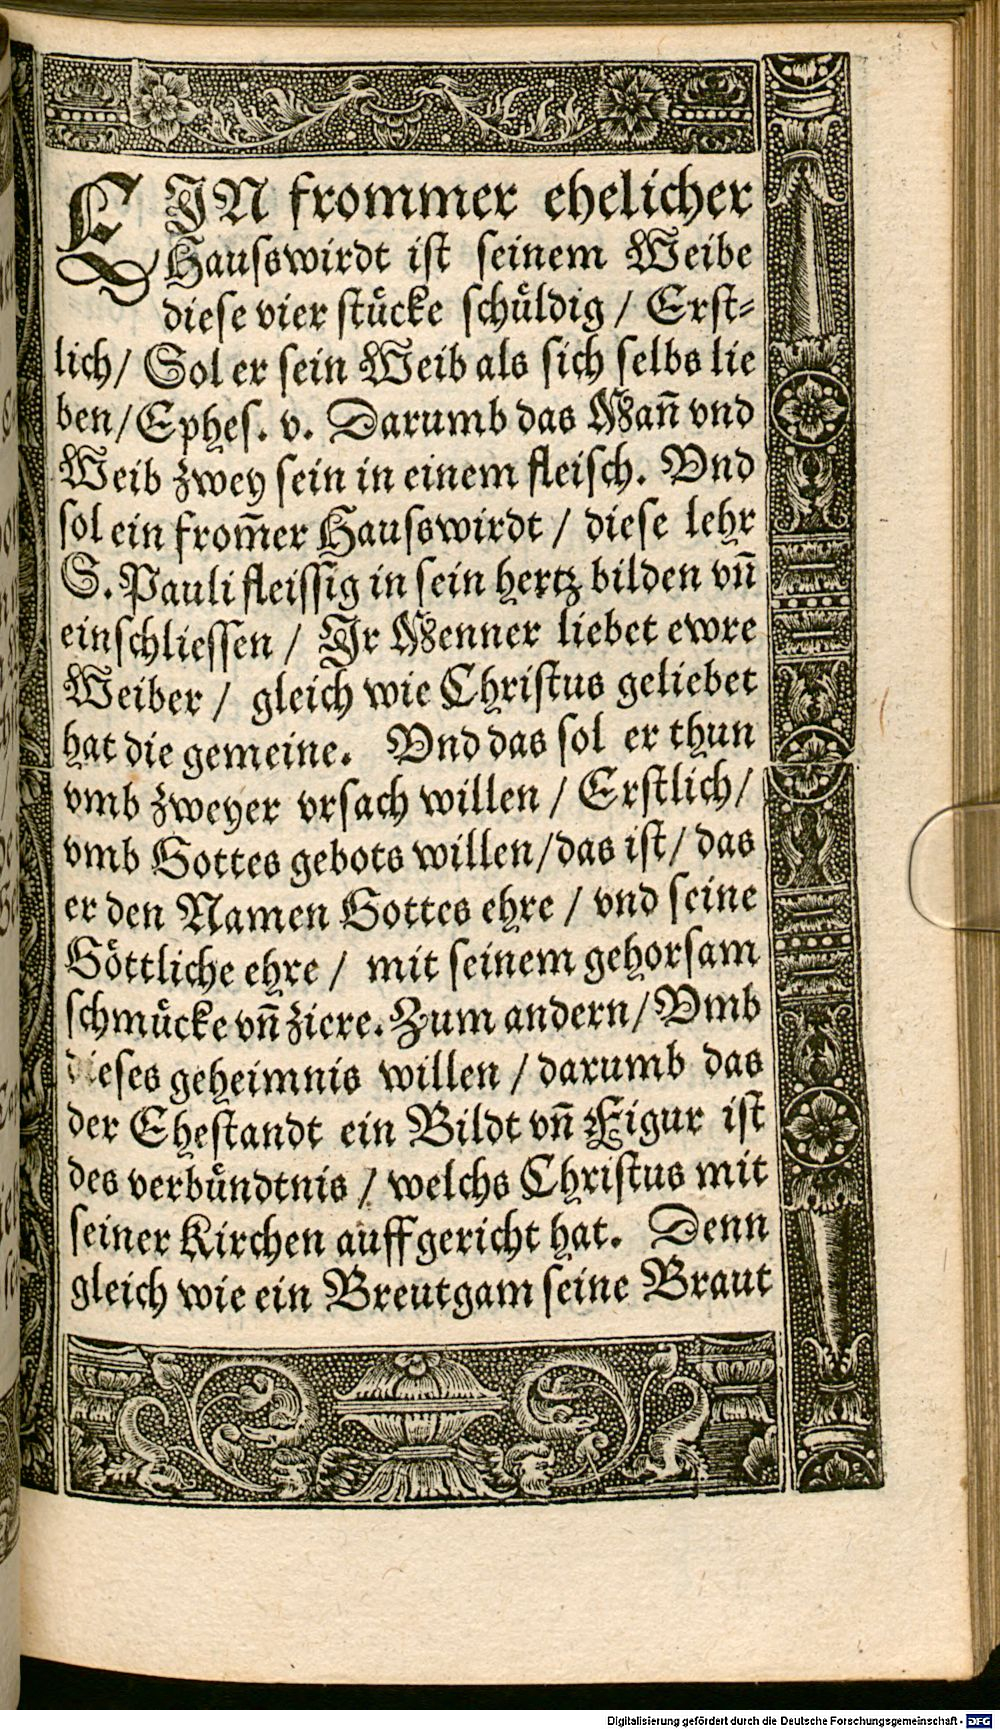 EIN frommer ehelicher
Hauswirdt ist seinem Weibe
diese vier stuͤcke schuͤldig / Erst⸗
lich / Sol er sein Weib als sich selbs lie
ben / Ephes. v. Darumb das Mañ vnd
Weib zwey sein in einem fleisch. Vnd
sol ein from̃er Hauswirdt / diese lehr
S. Pauli fleissig in sein hertz bilden vñ
einschliessen / Ir Menner liebet ewre
Weiber / gleich wie Christus geliebet
hat die gemeine. Vnd das sol er thun
vmb zweyer vrsach willen / Erstlich /
vmb Gottes gebots willen / das ist / das
er den Namen Gottes ehre / vnd seine
Goͤttliche ehre / mit seinem gehorsam
schmuͤcke vñ ziere. Zum andern / Vmb
dieses geheimnis willen / darumb das
der Ehestandt ein Bildt vñ Figur ist
des verbuͤndtnis / welchs Christus mit
seiner Kirchen auffgericht hat. Denn
gleich wie ein Breutgam seine Braut
Digitalisierung gefördert durch die Deutsche Forschungsgemeinschaft - DFG